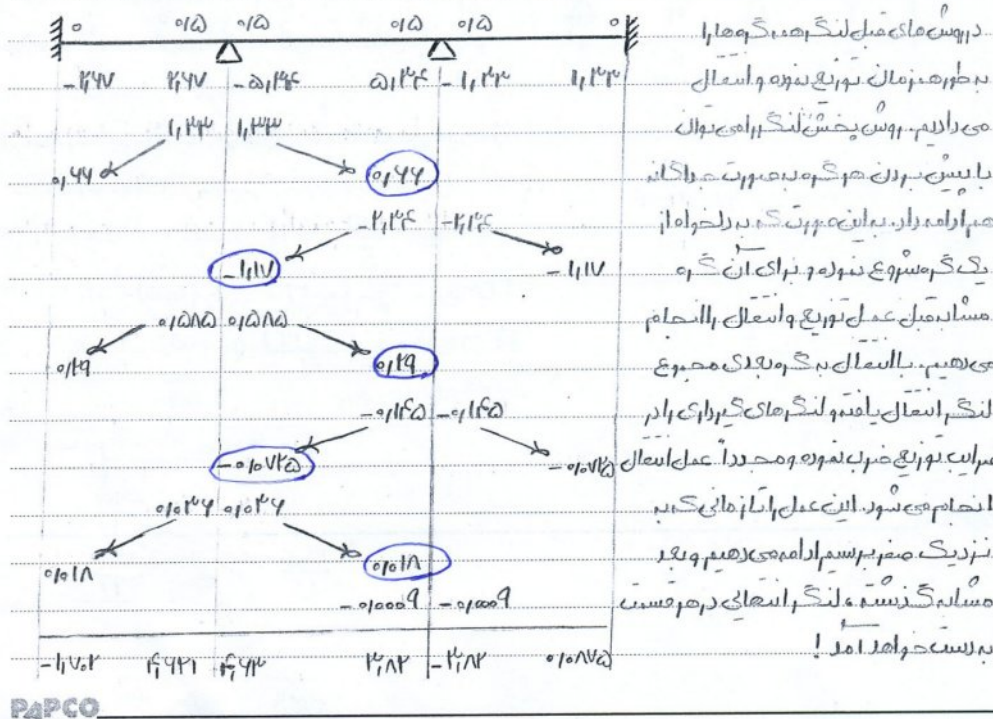 ۰ ۰/۵ ۰/۵ ۰/۵ ۰/۵ ۰
-۲,۶۷ ۲,۶۷ -۵,۳۴ ۵,۳۴ -۱,۳۳ ۱,۳۳
۱,۳۳ ۱,۳۳
۰,۶۶ ۰,۶۶
-۲,۳۴ -۲,۳۴
-۱,۱۷ -۱,۱۷
۰,۵۸۵ ۰,۵۸۵
۰,۲۹ ۰,۲۹
-۰,۱۴۵ -۰,۱۴۵
-۰,۰۷۲۵ -۰,۰۷۲۵
۰,۰۳۶ ۰,۰۳۶
۰,۰۱۸ ۰,۰۱۸
-۰,۰۰۰۹ -۰,۰۰۰۹
-۱,۷۰۲ ۴,۶۲۱ ۴,۶۳ ۳,۸۲ -۳,۸۲ ۰,۰۸۷۵
در روش های قبل لنگر همه گره ها را
به طور همزمان توزیع نموده و انتقال
می دادیم. روش پخش لنگر را می توان
با پیش بردن هر گره به صورت جداگانه
هم ادامه داد. به این صورت که به دلخواه از
یک گره شروع نموده و برای آن گره
مشابه قبل عمل توزیع و انتقال را انجام
می دهیم. با انتقال به گره بعدی مجموع
لنگر انتقال یافته و لنگرهای گیرداری را در
ضرایب توزیع ضرب نموده و مجدداً عمل انتقال
انجام می شود. این عمل را تا زمانی که به
نزدیک صفر برسیم ادامه می دهیم و بعد
مشابه گذشته، لنگر انتهایی در هر قسمت
به دست خواهد آمد!
PAPCO